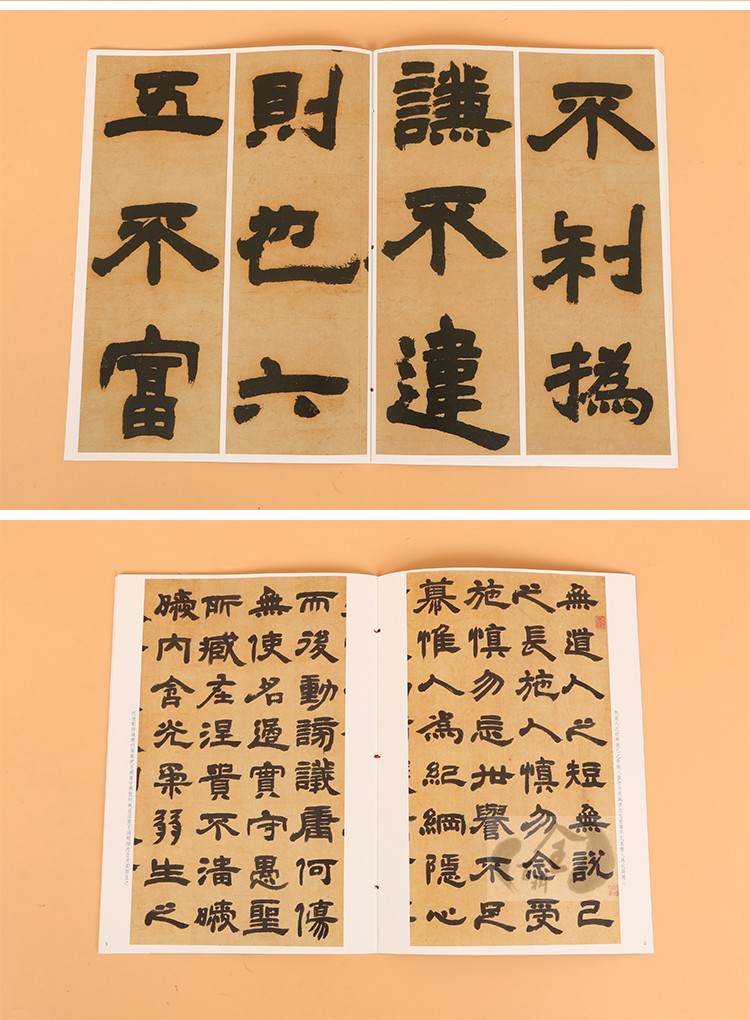 不利撝
謙不違
則也六
五不富
無道人之短無說己
之長施人慎勿念受
施慎勿忘世譽不足
慕惟人為紀綱隱心
而後動謗議庸何傷
無使名過實守愚聖
所臧在涅貴不淄曖
曖內含光柔弱生之